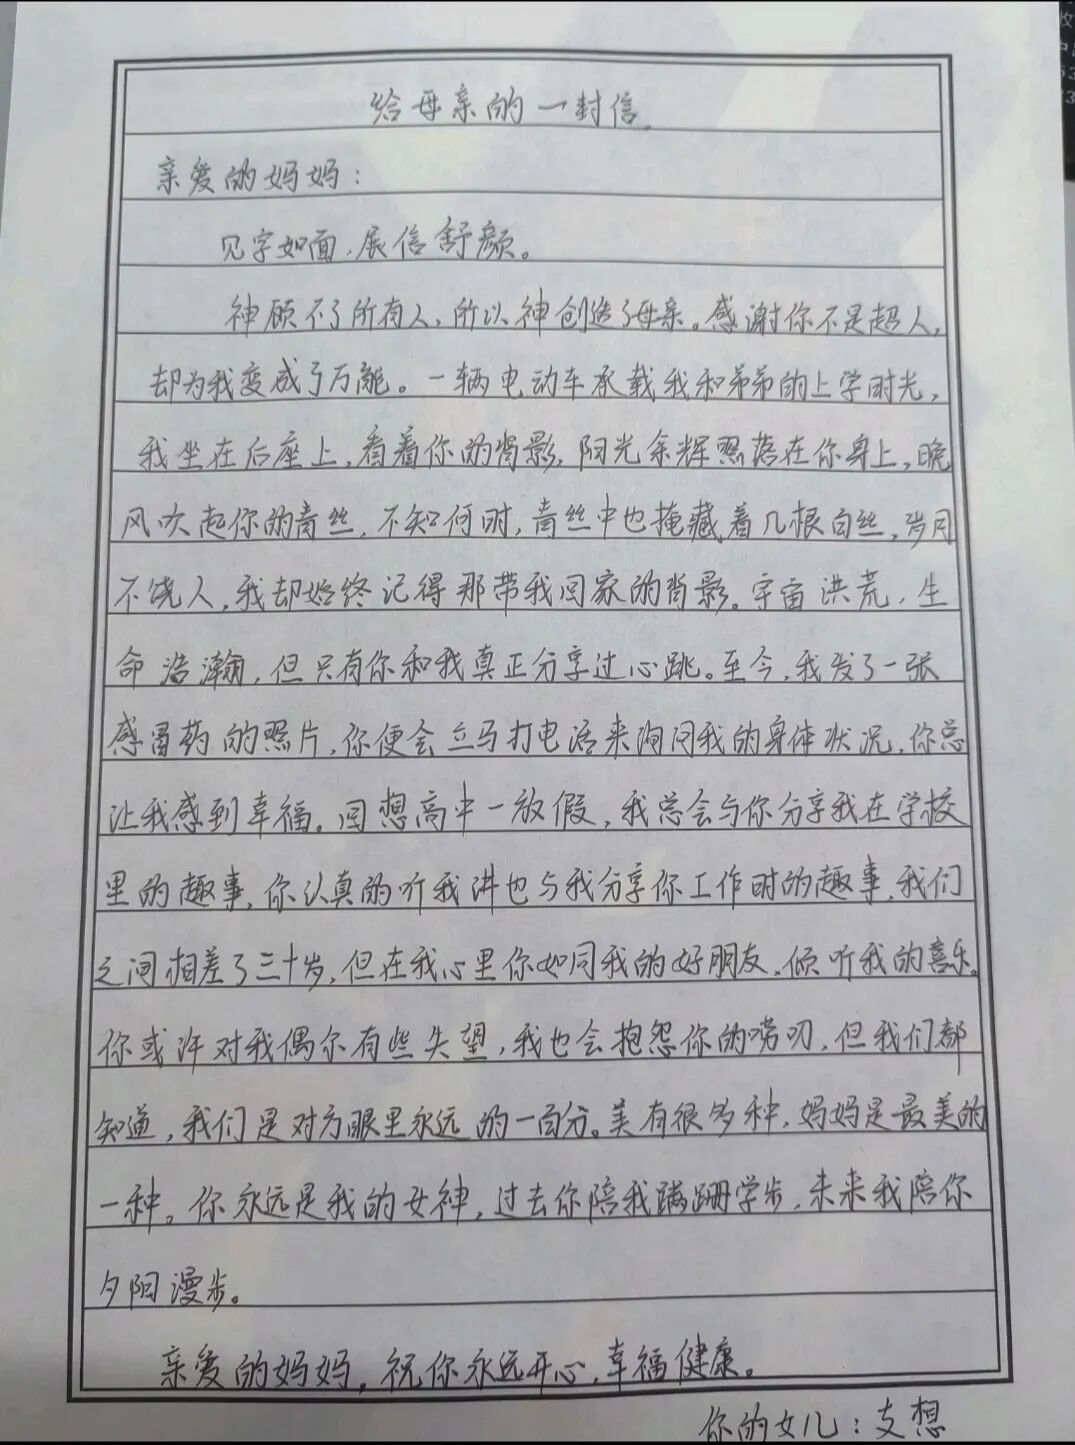 给母亲的一封信
亲爱的妈妈：
见字如面，展信舒颜。
神顾不了所有人，所以神创造了母亲。感谢你不是超人，
却为我变成了万能。一辆电动车承载我和弟弟的上学时光，
我坐在后座上，看着你的背影，阳光余辉照落在你身上，晚
风吹起你的青丝，不知何时，青丝中也掩藏着几根白丝，岁月
不饶人，我却始终记得那带我回家的背影。宇宙洪荒，生
命浩瀚，但只有你和我真正分享过心跳。至今，我发了一张
感冒药的照片，你便会立马打电话来询问我的身体状况，你总
让我感到幸福。回想高中一放假，我总会与你分享我在学校
里的趣事，你认真的听我讲也与我分享你工作时的趣事，我们
之间相差了三十岁，但在我心里你如同我的好朋友，倾听我的喜乐。
你或许对我偶尔有些失望，我也会抱怨你的唠叨，但我们都
知道，我们是对方眼里永远的一百分。美有很多种，妈妈是最美的
一种。你永远是我的女神，过去你陪我蹒跚学步，未来我陪你
夕阳漫步。
亲爱的妈妈，祝你永远开心，幸福健康。
你的女儿：支想